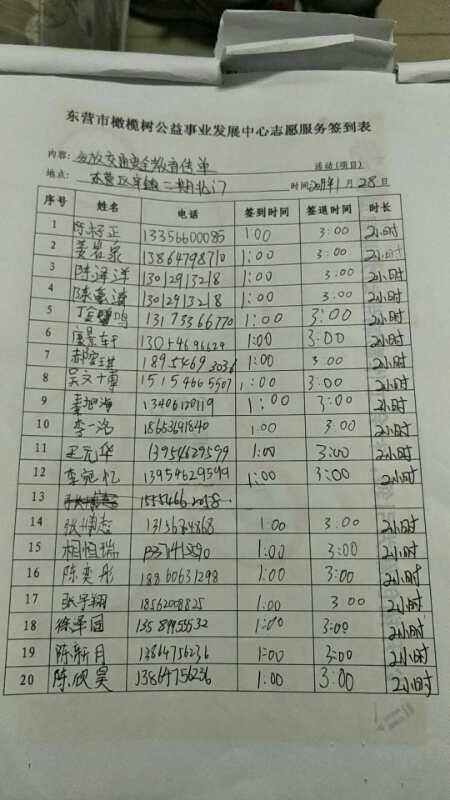 东营市橄榄树公益事业发展中心志愿服务签到表
内容: 发放交通安全教育传单 活动(项目)
地点: 东营区 二期北门 时间 2017年1月28日
序号 姓名 电话 签到时间 签退时间 时长
1 正 13356600085 1:00 3:00 2小时
2 姜岩泉 13864798710 1:00 3:00 2小时
3 陈泽洋 13012913218 1:00 3:00 2小时
4 陈 13012913218 1:00 3:00 2小时
5 鸣 13173366770 1:00 3:00 2小时
6 轩 13014696629 1:00 3:00 2小时
7 郝 琪 18954693036 1:00 3:00 2小时
8 吴文 15154665507 1:00 3:00 2小时
9 秦旭海 13406120119 1:00 3:00 2小时
10 李一洛 18653691840 1:00 3:00 2小时
11 王元华 13954629599 1:00 3:00 2小时
12 李宛忆 13954629599 1:00 3:00 2小时
13 15554662058
14 张博志 1:00 3:00 2小时
15 相恒瑞 1:00 3:00 2小时
16 陈奕彤 18860631298 1:00 3:00 2小时
17 张宇翔 18562008825 1:00 3:00 2小时
18 徐泽国 13589955532 1:00 3:00 2小时
19 陈新月 13864756236 1:00 3:00 2小时
20 陈欣昊 13864756236 1:00 3:00 2小时